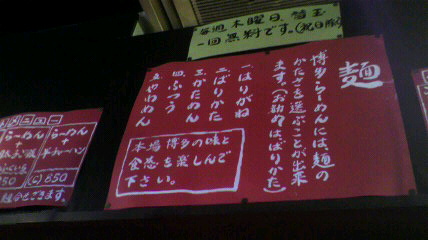 毎週木曜日、替玉
一回無料です。(祝日除く)
麺
博多らーめんには、麺の
かたさを選ぶことが出来
ます。(お勧めはばりかた)
一、はりがね
二、ばりかた
三、かためん
四、ふつう
五、やわめん
本場博多の味と
食感を楽しんで
下さい。
らーめん
+
半チャーハン
850
らーめん
+